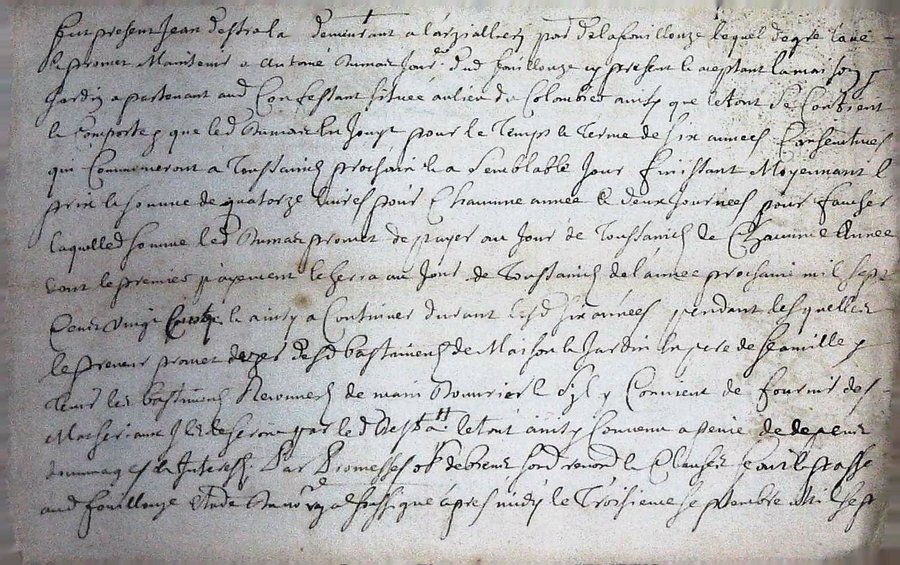 fut present Jean destrala demeurant a larzallier par de lafouillouze lequel de gre a
promet Maintenir a Antoine Dumas dud fouillouze cy present le aceptant la maison
Jardin apartenant aud Confessant située au lieu du Colombier ainsy que le tout se Contient
le Comporte que led Dumas En Jouyt pour le Temps le terme de six années Consecutives
qui Commenceront a Toussainctz prochain a semblable Jour finissant Moyennant l
prix la somme de quatorze livres pour Chacunne année & deux Journées pour faucher
laquelled somme led Dumas promet de payer au Jour de Toussainctz de Chacunne Année
dont le premier payement se ferra au Jour de Toussainctz de l'année prochaine mil sept
Cens vingt le ainsy a Continuer durant lesd six années pendant lesquelles
le preneur promet desd bastimens de Maison le Jardin En pere de famille
tenir les bastimens de main S'il y Convient de fournir des
Materiaux Ilz le seront par led le tout ainsy Convenu a peine de
dommages le Interestz Par Promesses ob de biens soud renond le Clauses faict le passe
aud fouillouze Estude apres midy le Troisieme septembre mil sept